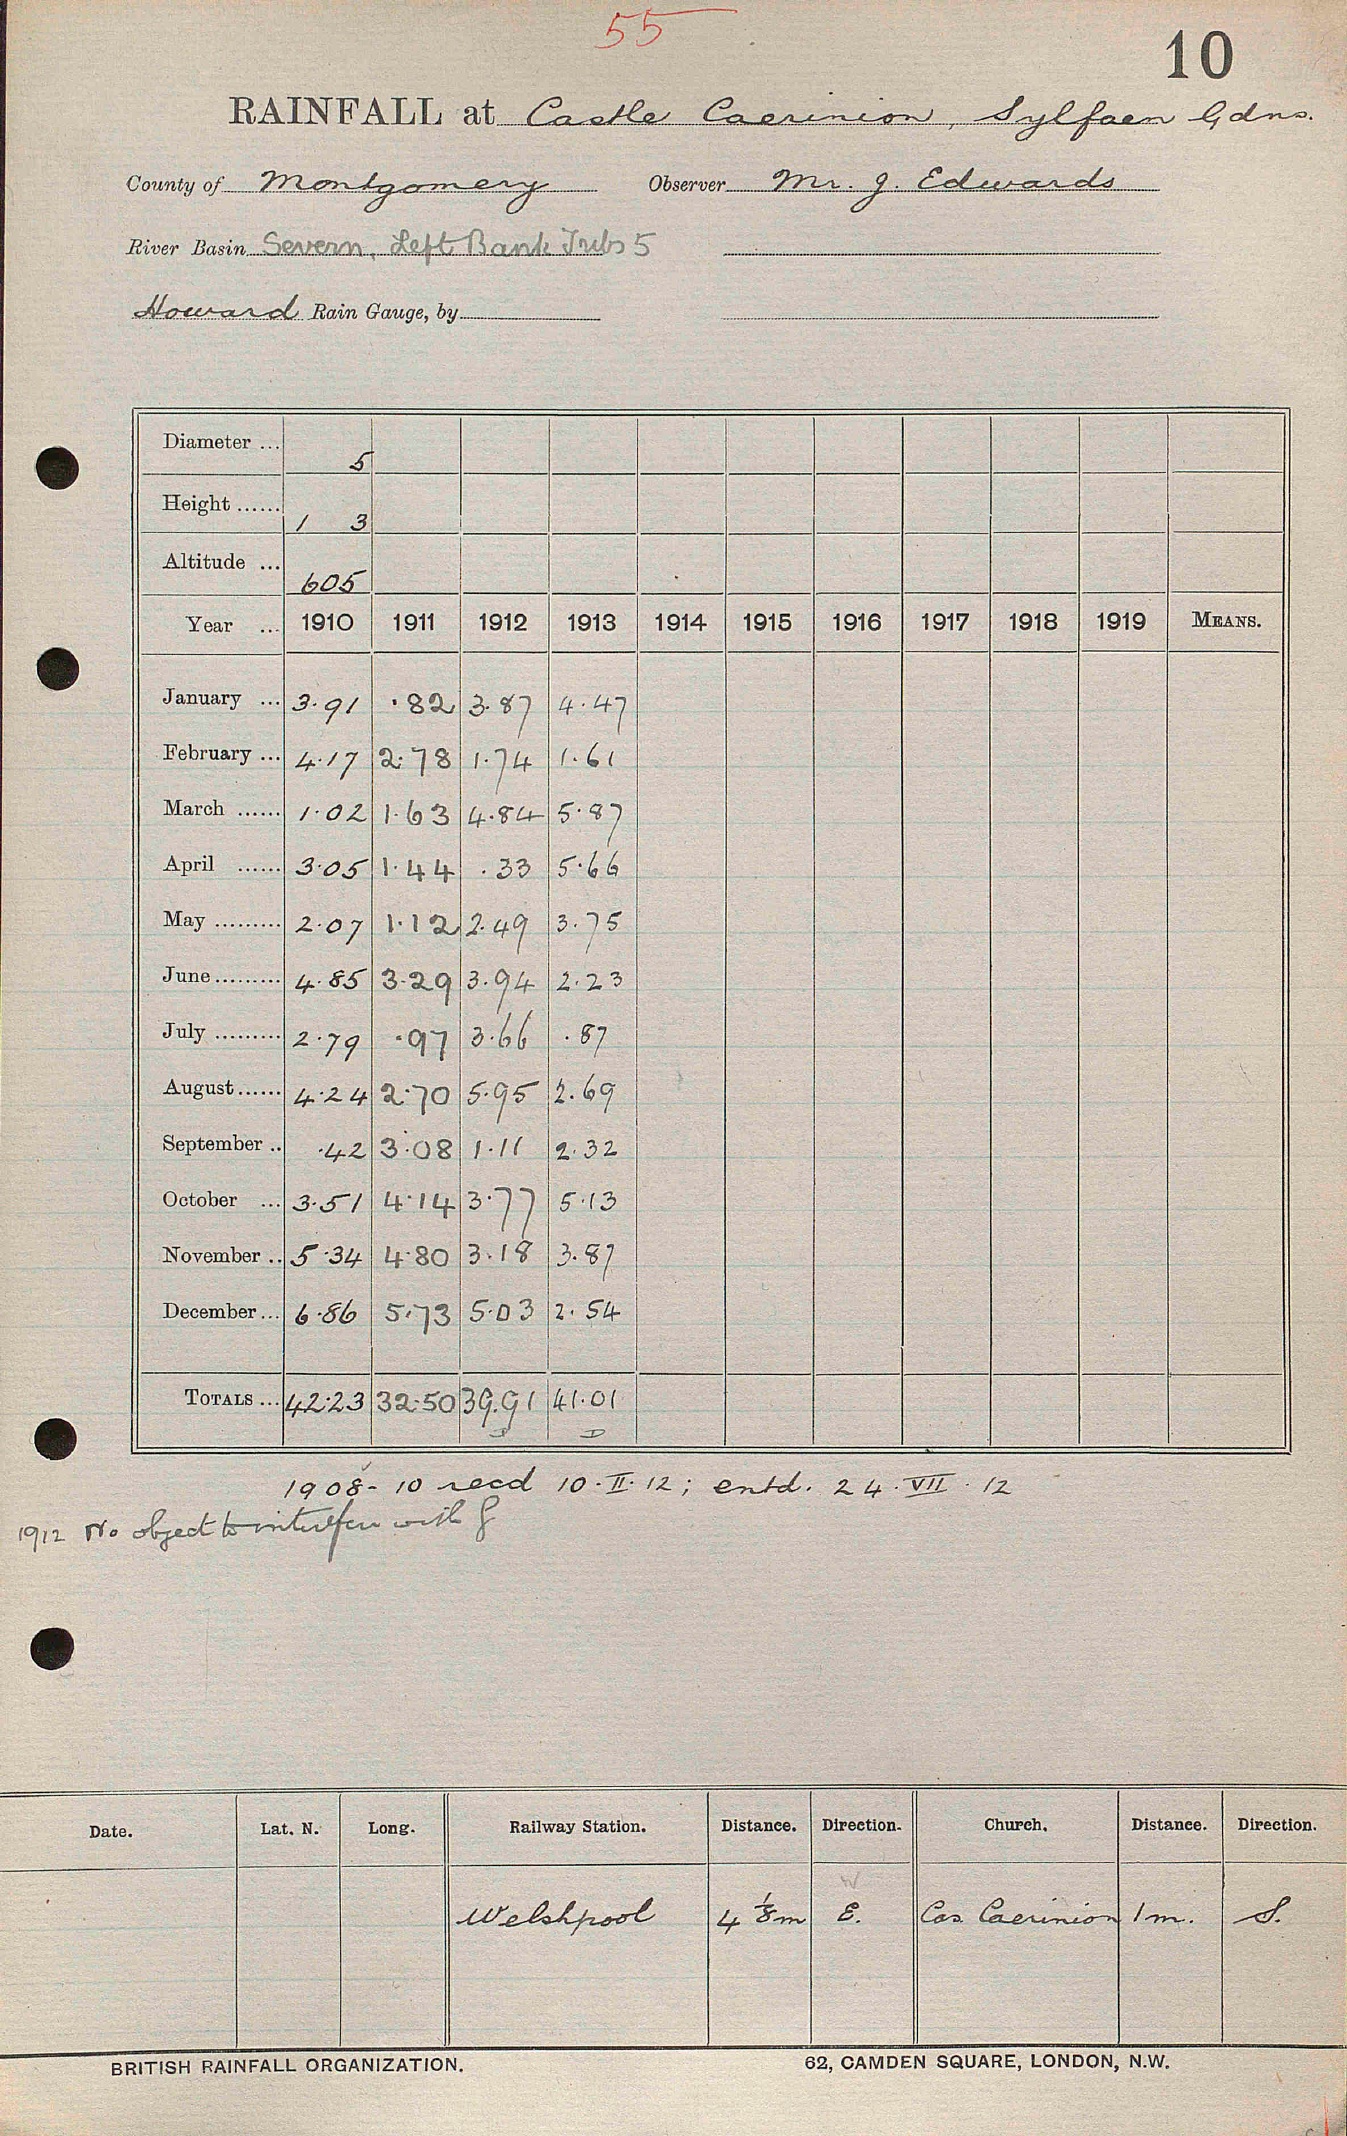 55
10
RAINFALL at Castle Caerinion, Sylfaen Gdns.
County of Montgomery Observer Mr. J. Edwards
River Basin Severn, Left Bank Tribs 5
Howard Rain Gauge, by
Diameter ... 5
Height ...... 1 3
Altitude ... 605
Year ... 1910 1911 1912 1913 1914 1915 1916 1917 1918 1919 MEANS.
January ... 3.91 .82 3.87 4.47
February ... 4.17 2.78 1.74 1.61
March ...... 1.02 1.63 4.84 5.87
April ...... 3.05 1.44 .33 5.66
May ......... 2.07 1.12 2.49 3.75
June ......... 4.85 3.29 3.94 2.23
July ......... 2.79 .97 3.66 .87
August ...... 4.24 2.70 5.95 2.69
September .. .42 3.08 1.11 2.32
October ... 3.51 4.14 3.77 5.13
November .. 5.34 4.80 3.18 3.87
December ... 6.86 5.73 5.03 2.54
TOTALS ... 42.23 32.50 39.91 41.01
1908-10 recd 10.II.12; entd. 24.VII.12
1912 No object to interfere with g
Date. Lat. N. Long. Railway Station. Distance. Direction. Church. Distance. Direction.
W
Welshpool 4 1/8 m E. Cas. Caerinion 1 m. S.
BRITISH RAINFALL ORGANIZATION. 62, CAMDEN SQUARE, LONDON, N.W.